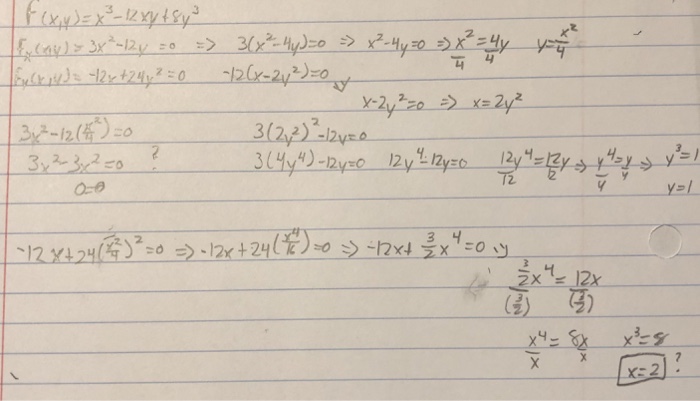 f(x,y) = x³-12xy+8y³
fₓ(x,y) = 3x²-12y = 0 => 3(x²-4y)=0 => x²-4y=0 => x²/4 = 4y/4 y = x²/4
(x,y) = -12x+24y²=0 -12(x-2y²)=0
x-2y²=0 => x=2y²
3x²-12(x²/4)=0 3(2y²)²-12y=0
3x²-3x²=0 ? 3(4y⁴)-12y=0 12y⁴-12y=0 12y⁴/12 = 12y/12 => y⁴/y = y/y => y³=1
0=0 y=1
-12x+24(x²/4)²=0 => -12x+24(x⁴/16)=0 => -12x+ 3/2 x⁴=0
3/2 x⁴/(3/2) = 12x/(3/2)
x⁴/x = 8x/x x³=8
x=2 ?